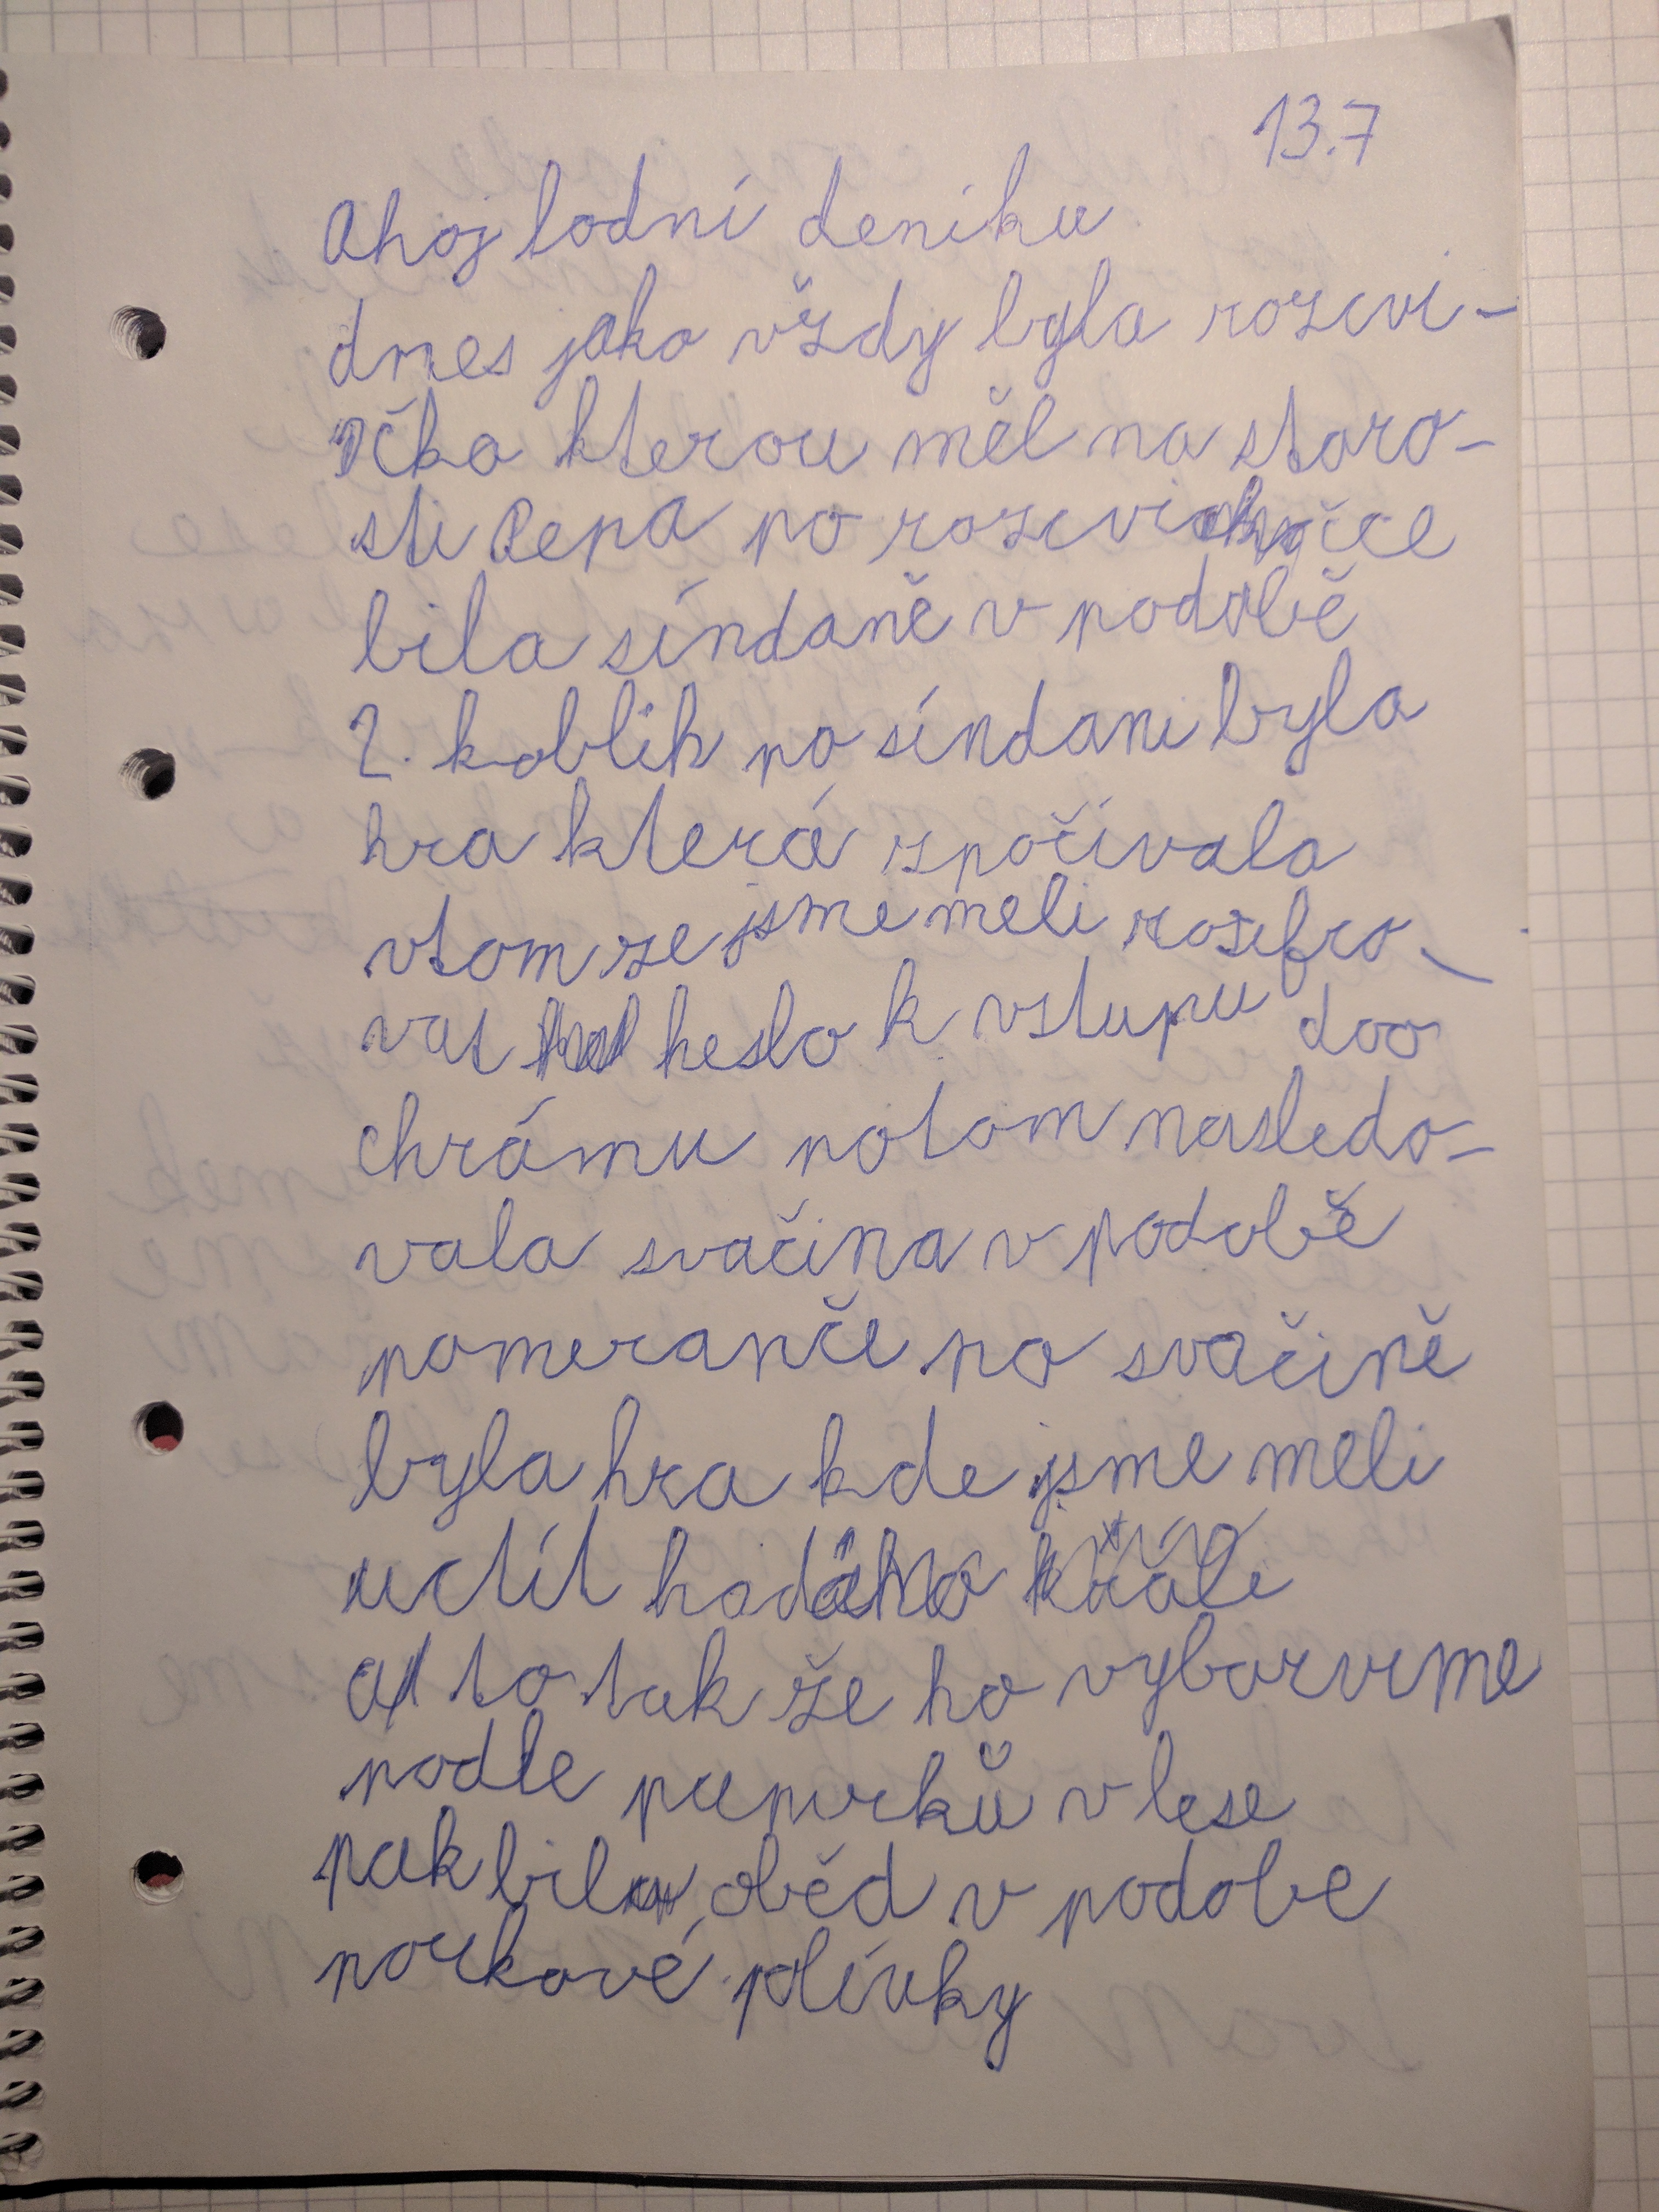 13.7
Ahoj lodní deniku
dnes jako vždy byla rozcvi-
čka kterou měl na staro-
sti Pepa po rozcvičce
bila síndaně v podobě
2. koblih po síndani byla
hra která zpočívala
vtom ze jsme meli rozšifro-
vat heslo k vstupu doo
chrámu potom nasledo-
vala svačina v podobě
pomeranče po svačině
byla hra kde jsme meli
uctít krále
a to tak že ho vybarvime
podle papirků v lese
pak bil oběd v podobe
porkové plívky